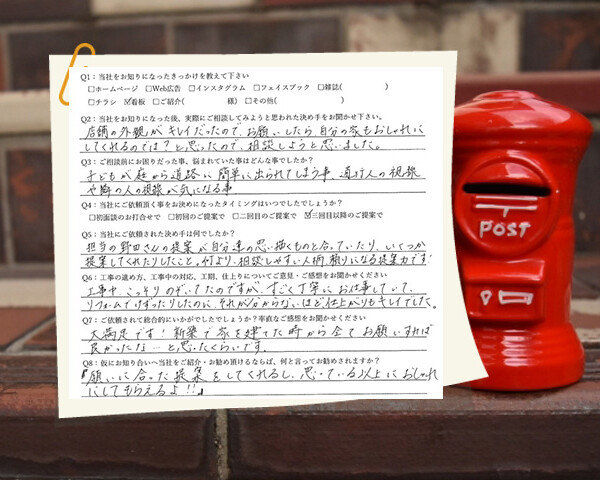 Q1：当社をお知りになったきっかけを教えて下さい
□ホームページ □Web広告 □インスタグラム □フェイスブック □雑誌( )
□チラシ ☑看板 □ご紹介( 様) □その他( )
Q2：当社をお知りになった後、実際にご相談してみようと思われた決め手をお聞かせ下さい。
店舗の外観がキレイだったので、お願いしたら自分の家もおしゃれに
してくれるのでは？と思ったので、相談しようと思いました。
Q3：ご相談前にお困りだった事、悩まれていた事はどんな事でしたか？
子どもが庭から道路に簡単に出られてしまう事、通行人の視線
や隣の人の視線が気になる事
Q4：当社にご依頼頂く事をお決めになったタイミングはいつでしたでしょうか？
□初面談のお打合せで □初回のご提案で □二回目のご提案で ☑三回目以降のご提案で
Q5：当社にご依頼された決め手は何でしたか？
担当の野田さんの提案が自分達の思い描くものと合っていたり、いくつか
提案してくれたりしたこと。何より、相談しやすい人柄、頼りになる提案力です！
Q6：工事の進め方、工事中の対応、工期、仕上りについてご意見・ご感想をお聞かせください
工事中、こっそりのぞいてたのですが、すごく丁寧にお仕事していて、
リフォームでけずったりしたのに、それが分からないほど仕上がりもキレイでした。
Q7：ご依頼されて総合的にいかがでしたでしょうか？率直なご感想をお聞かせください
大満足です！新築で家を建てた時から全てお願いすれば
良かったな…と思ったくらいです。
Q8：仮にお知り合いへ当社をご紹介・お勧め頂けるならば、何と言ってお勧めされますか？
「願いに合った提案をしてくれるし、思っている以上におしゃれ
にしてもらえるよ！！」
〒
POST